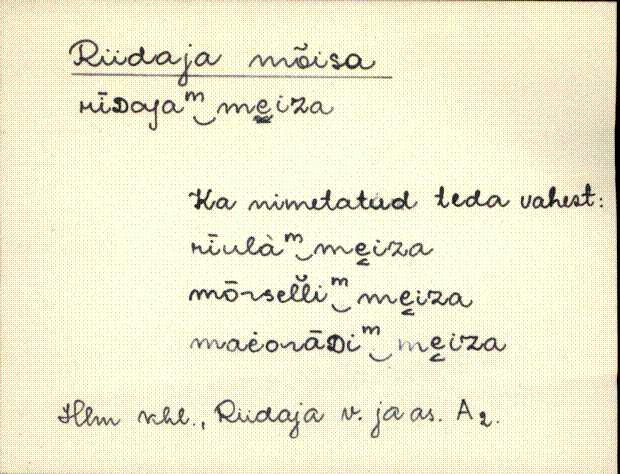 Riidaja mõisa
rīᴅajaᵐ‿me̬iza
Ka nimetatud teda vahest:
rīulàᵐ‿me̬iza
mōrsel̆liᵐ‿me̬iza
maėorāᴅiᵐ‿me̬iza
Hlm khl., Riidaja v. ja as. A₂.